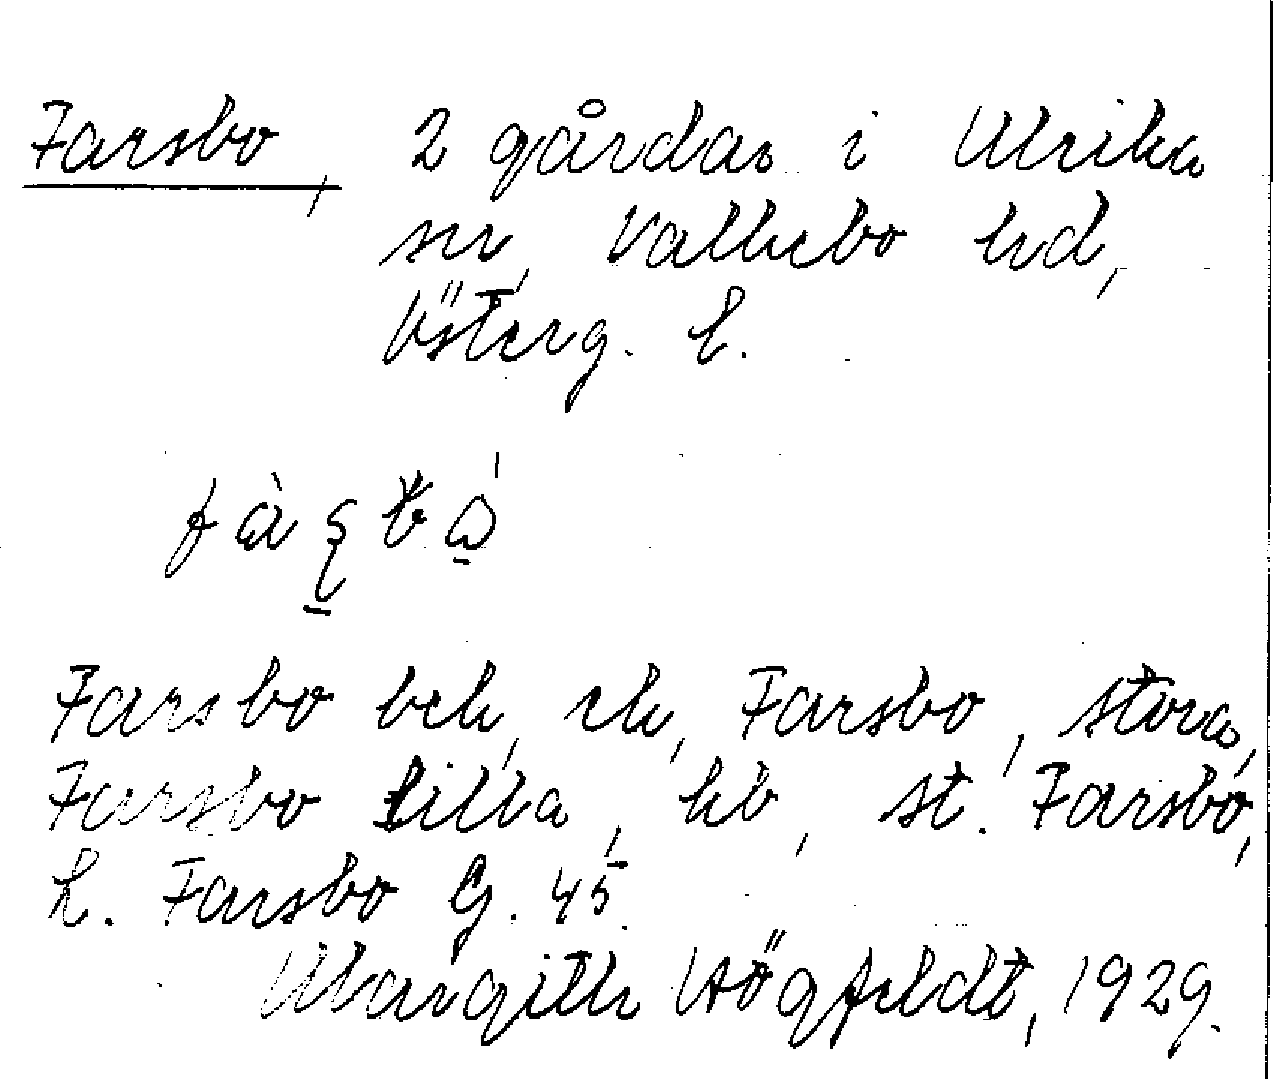 Farsbo, 2 gårdar i Ulrika
sn, Vallebo hd,
Österg. l.
Farsbo bek, ek, Farsbo, stora,
Farsbo lilla, hb, st. Farsbo,
l. Farsbo G. 45.
Margith Högfeldt, 1929.